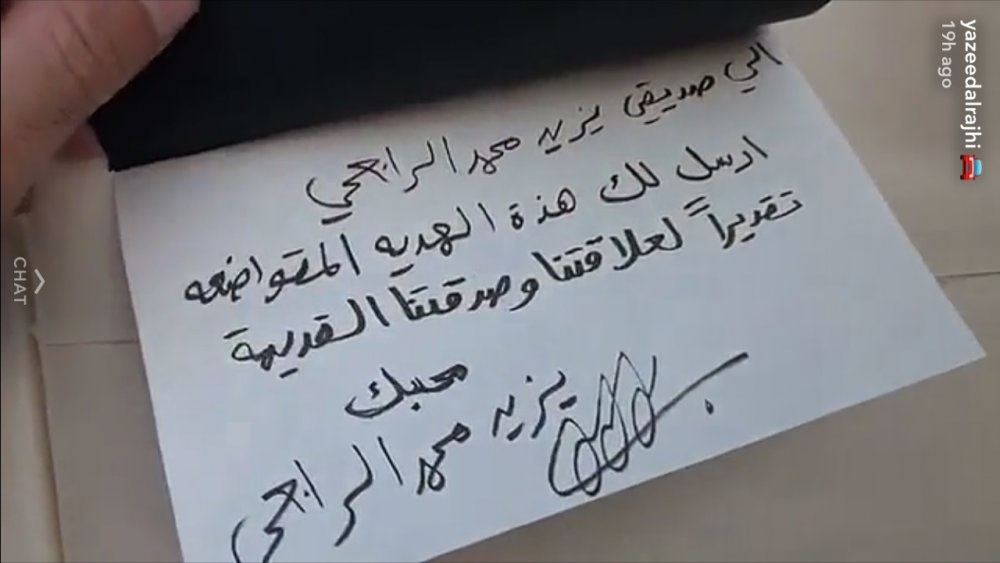 الي صديقي يزيد محمد الراجحي
ارسل لك هذة الهديه المتواضعه
تقديراً لعلاقتنا وصدقتنا القديمة
محبك
يزيد محمد الراجحي
yazeedalrajhi
19h ago
CHAT